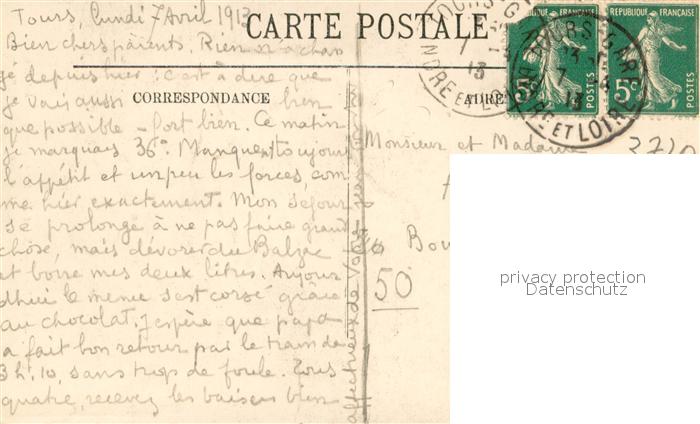 CARTE POSTALE
CORRESPONDANCE
ADRE
Tours, Lundi 7 Avril 1913
Bien chers parents. Rien n'a chan
gé depuis hier : c'est à dire que
je vais aussi bien
que possible - fort bien. Ce matin
je marquais 36°. Manquent toujours
l'appétit et un peu les forces, com
me hier exactement. Mon séjour
se prolonge à ne pas faire grand
chose, mais dévorer du Balzac
et boire mes deux litres. Aujour
d'hui le menu s'est corsé grâce
au chocolat. J'espère que papa
a fait bon retour par le train de
3h,10, sans trop de foule. Tous
quatre, recevez les baisers bien
affectueux de votre
Monsieur et Madame
Bou
50
RÉPUBLIQUE FRANÇAISE
5c
POSTES
RÉPUBLIQUE FRANÇAISE
5c
POSTES
TOURS-GARE
INDRE ET LOIRE
7
13
privacy protection
Datenschutz